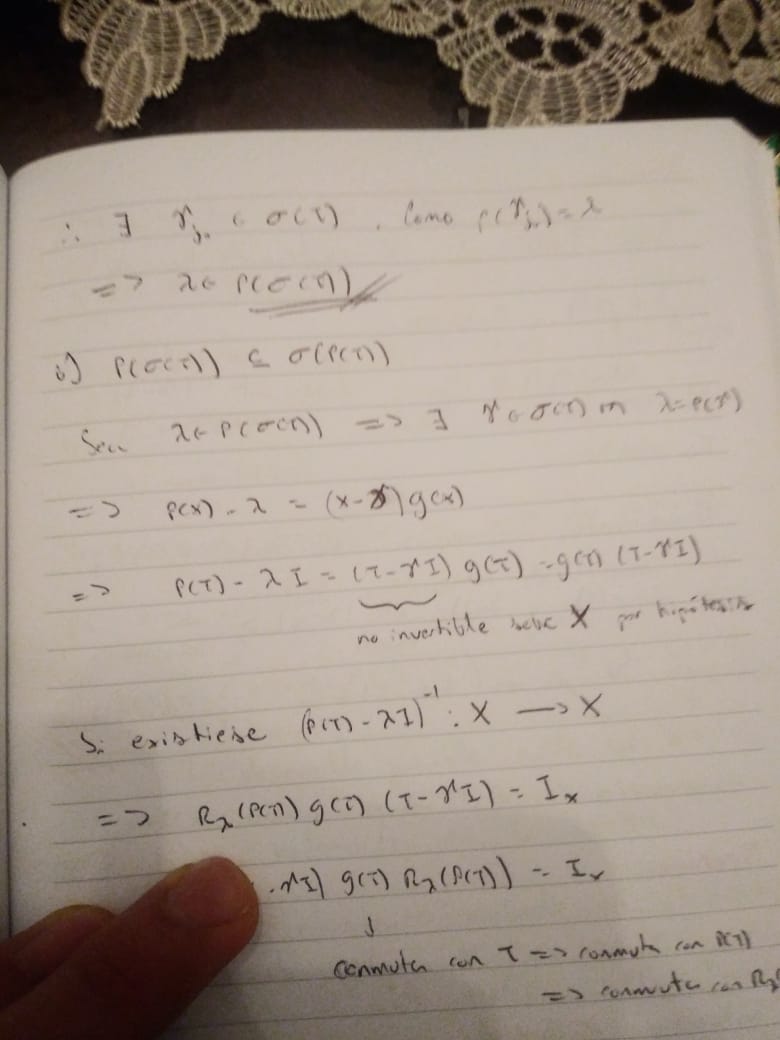 ∴ ∃ γ_{j_0} ∈ σ(T) . Como p(γ_{j_0}) = λ
=> λ ∈ P(σ(T))
ii) P(σ(T)) ⊆ σ(P(T))
Sea λ ∈ P(σ(T)) => ∃ γ ∈ σ(T) m λ = p(γ)
=> p(x) - λ = (x-γ) g(x)
=> P(T) - λI = (T-γI) g(T) = g(T) (T-γI)
no invertible sobre X por hipótesis
Si existiese (P(T) - λI)^{-1} : X → X
=> R_λ(P(T)) g(T) (T-γI) = I_X
γI) g(T) R_λ(P(T)) = I_X
↓
conmuta con T => conmuta con P(T)
=> conmuta con R_λ